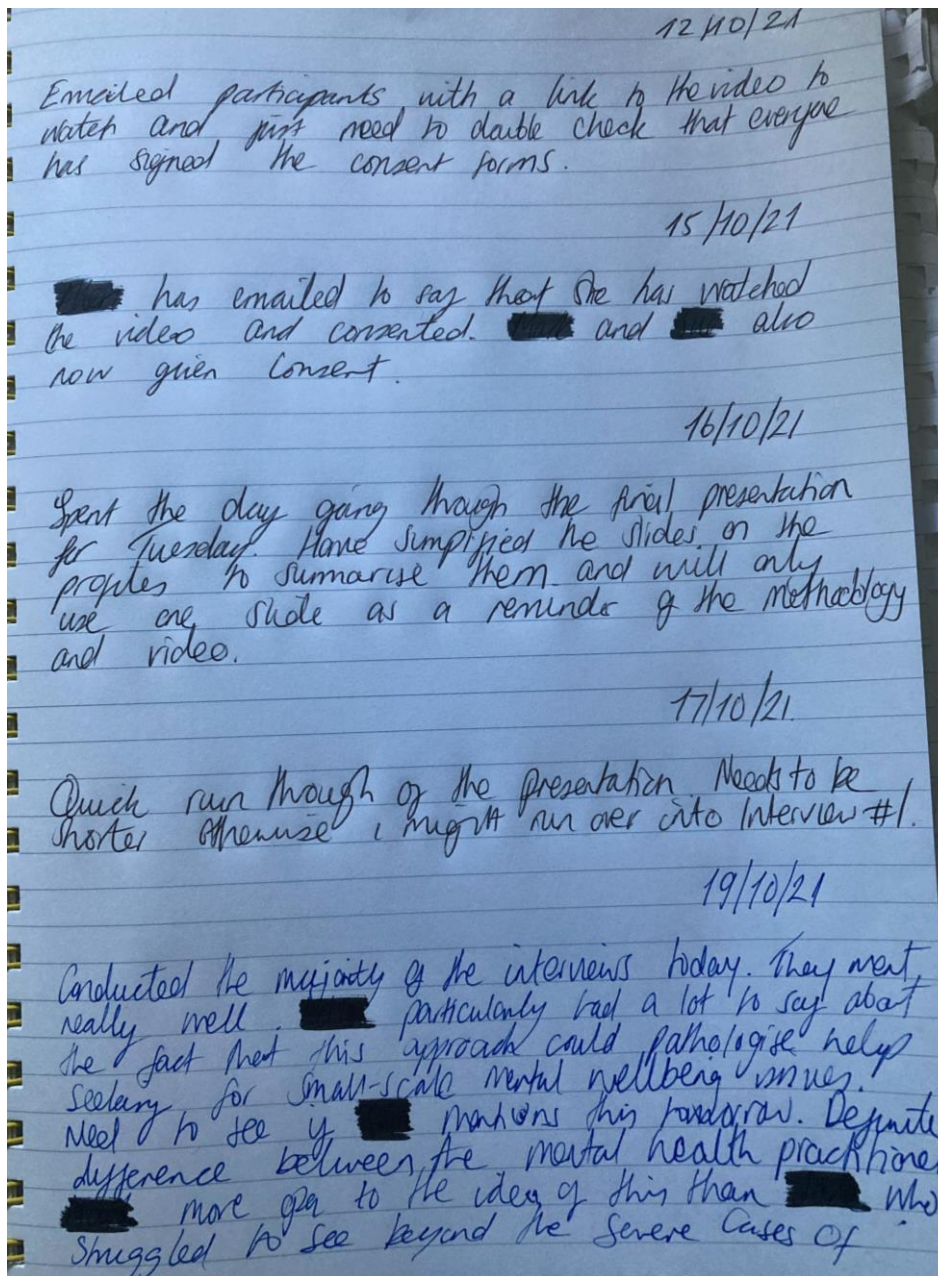 12/10/21
Emailed participants with a link to the video to
watch and just need to double check that everyone
has signed the consent forms.
15/10/21
has emailed to say that she has watched
the video and consented. and also
now given consent.
16/10/21
Spent the day going through the final presentation
for Tuesday. Have simplified the slides on the
profiles to summarise them and will only
use one slide as a reminder of the methodology
and video.
17/10/21.
Quick run through of the presentation. Needs to be
shorter otherwise i might run over into Interview #1.
19/10/21
Conducted the majority of the interviews today. They went
really well. particularly had a lot to say about
the fact that this approach could pathologise help
seeking for small-scale mental wellbeing issues.
Need to see if mentions this tomorrow. Definite
difference between the mental health practitioner
more open to the idea of this than who
struggled to see beyond the severe cases of